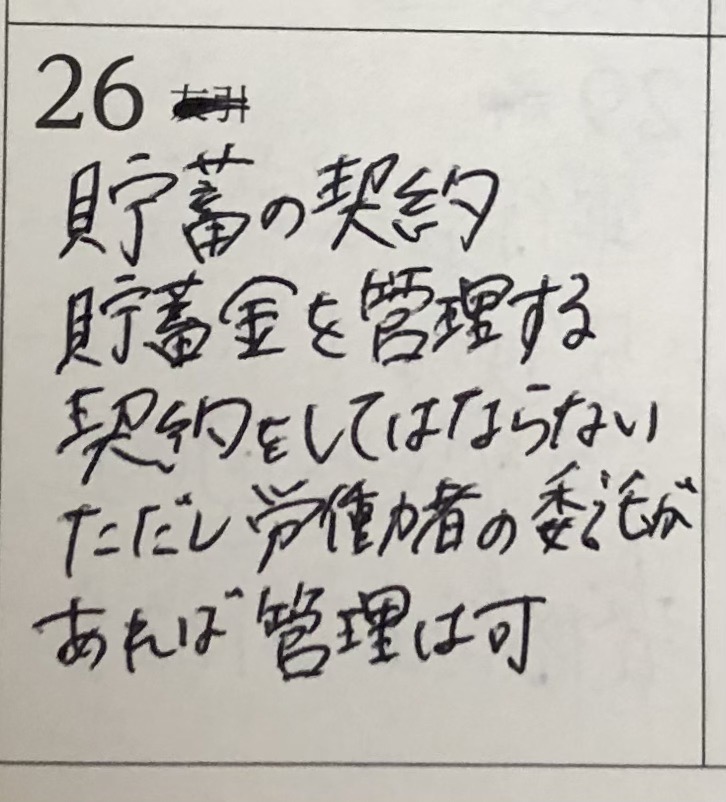 26
貯蓄の契約
貯蓄金を管理する
契約をしてはならない
ただし労働者の委託が
あれば管理は可